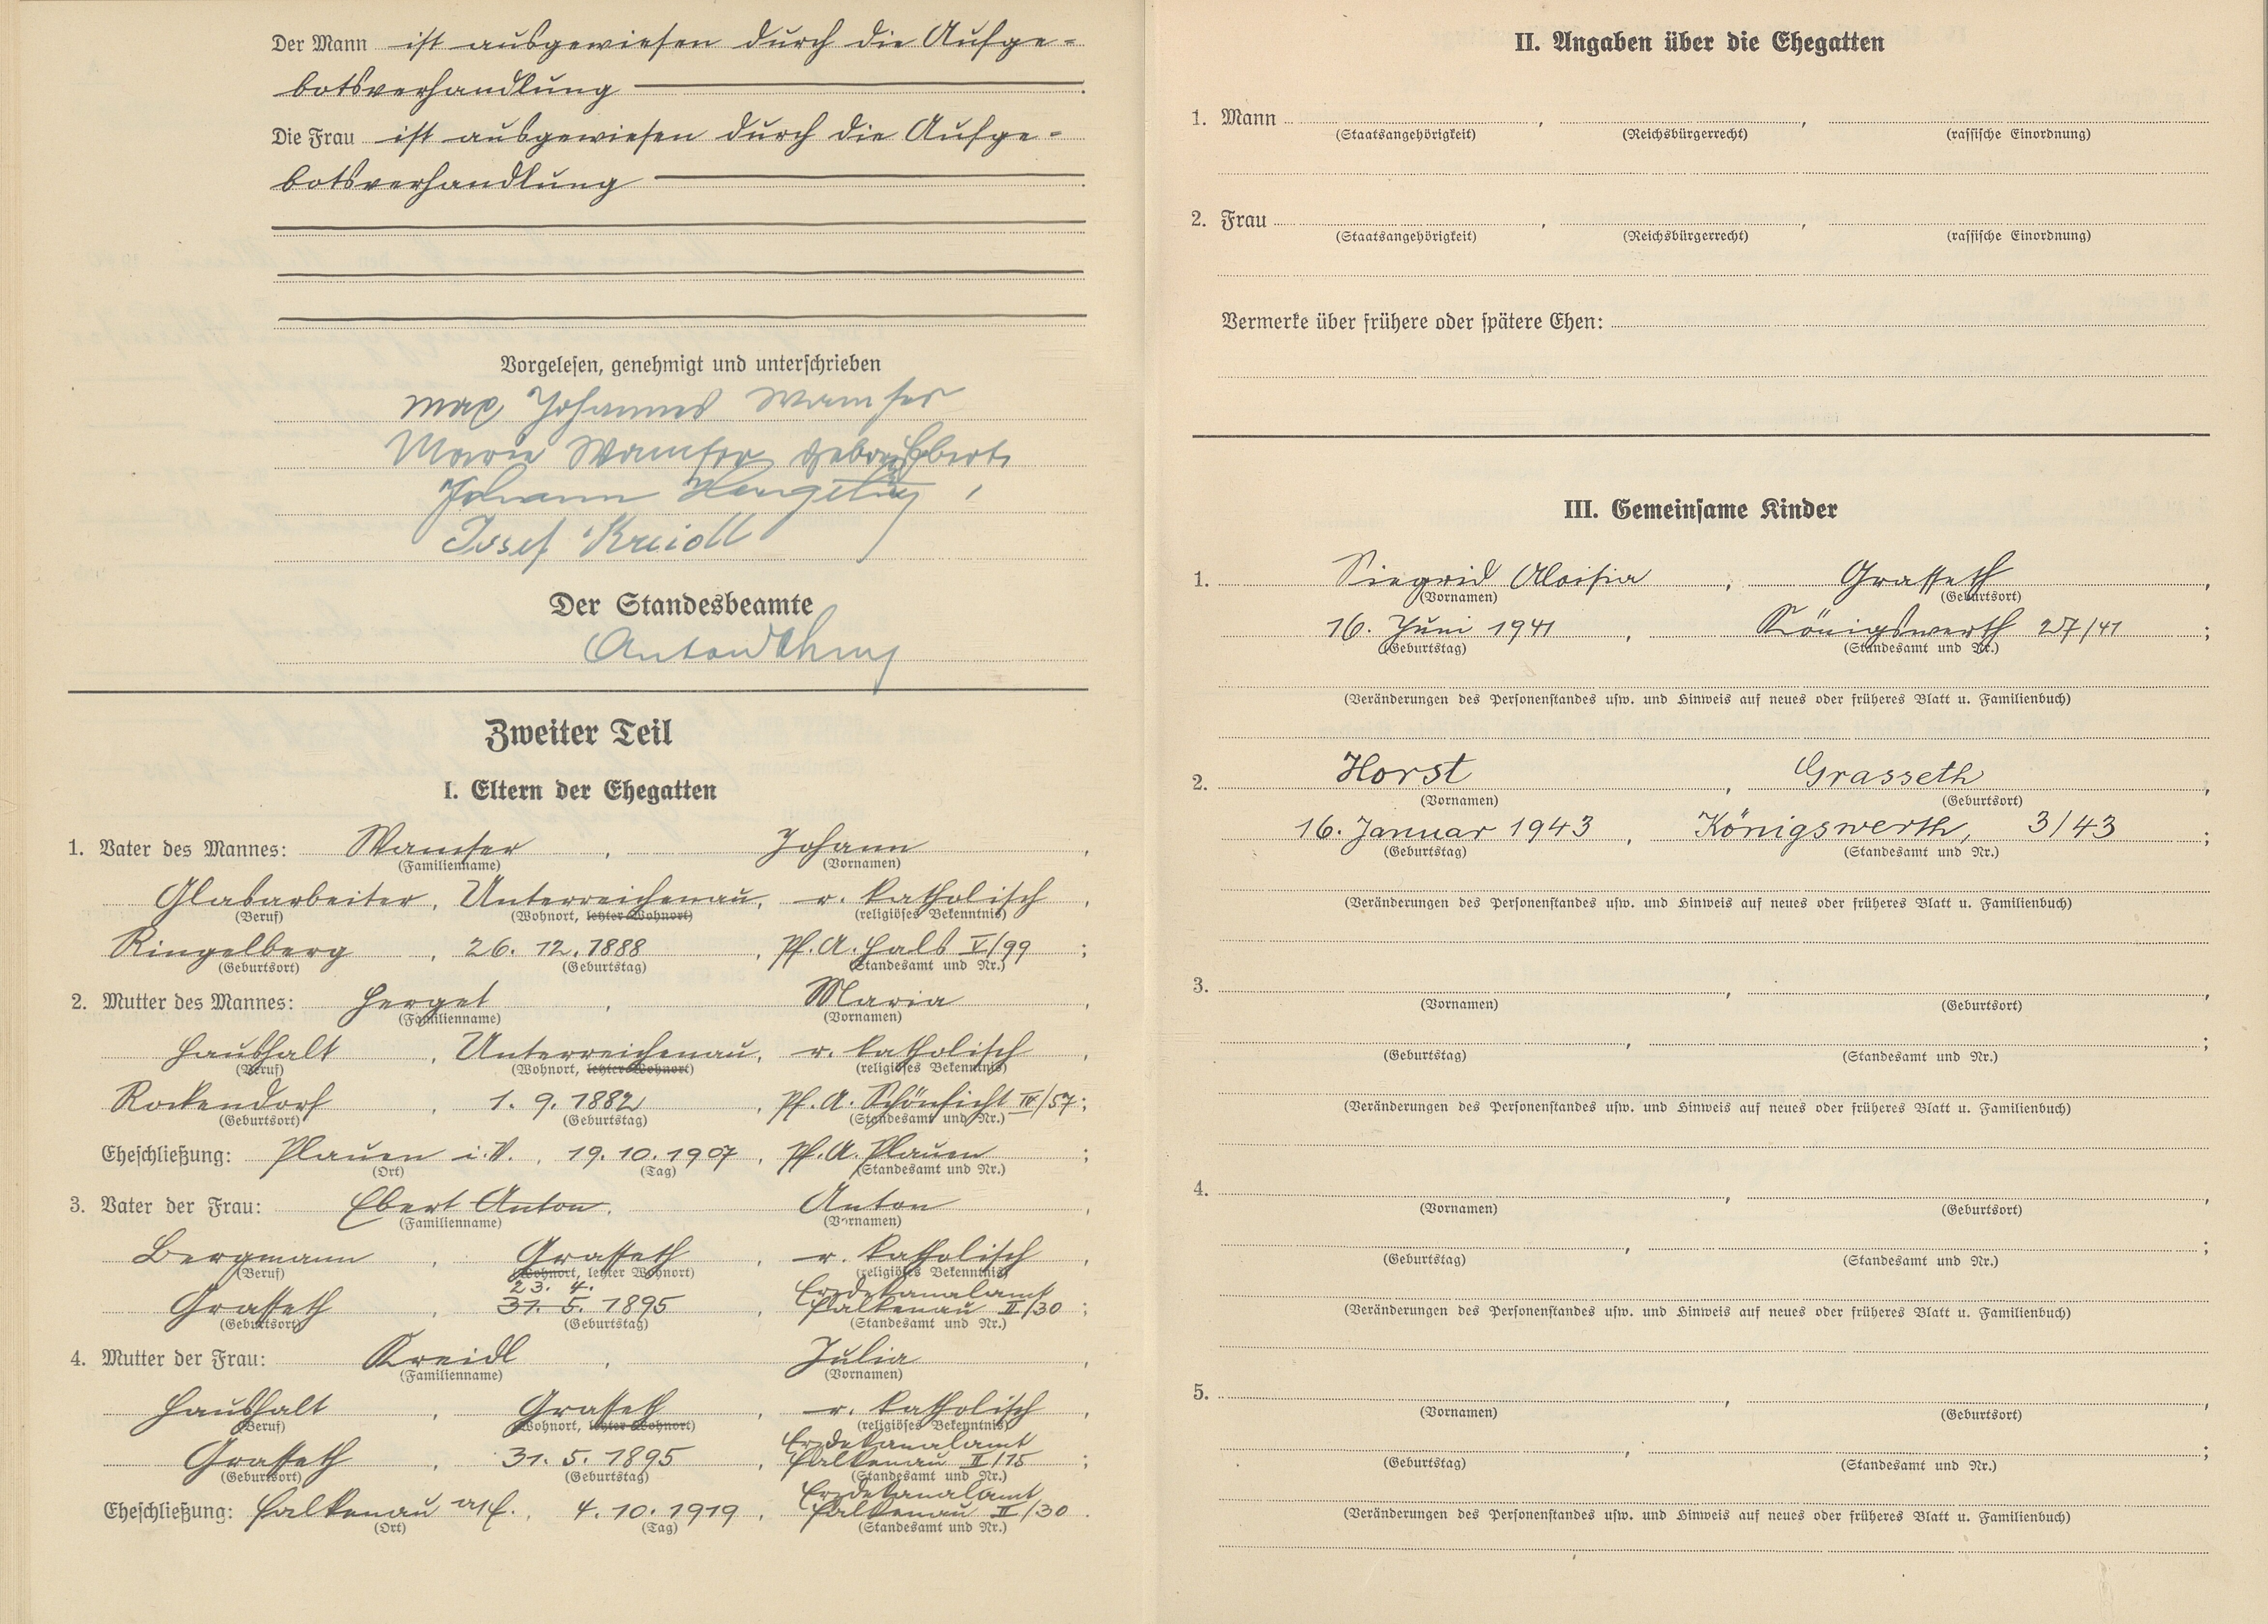 Der Mann ist ausgewiesen durch die Aufge-
botsverhandlung
Die Frau ist ausgewiesen durch die Aufge-
botsverhandlung
Vorgelesen, genehmigt und unterschrieben
Max Johannes Wamser
Marie Wamser Ebert
Johann
Josef Kreidl
Der Standesbeamte
Anton
Zweiter Teil
I. Eltern der Ehegatten
1. Vater des Mannes: Wamser, Johann,
(Familienname) (Vornamen)
Glasarbeiter, Unterreichenau, r. katholisch,
(Beruf) (Wohnort, letzter Wohnort) (religiöses Bekenntnis)
Ringelberg, 26. 12. 1888, Pf. A. Hals V/99;
(Geburtsort) (Geburtstag) (Standesamt und Nr.)
2. Mutter des Mannes: Herget, Maria,
(Familienname) (Vornamen)
Haushalt, Unterreichenau, r. katholisch,
(Beruf) (Wohnort, letzter Wohnort) (religiöses Bekenntnis)
Rockendorf, 1. 9. 1882, Pf. A. Schönficht IV/57;
(Geburtsort) (Geburtstag) (Standesamt und Nr.)
Eheschließung: Plauen i. V., 19. 10. 1907, Pf. A. Plauen;
(Ort) (Tag) (Standesamt und Nr.)
3. Vater der Frau: Ebert Anton, Anton,
(Familienname) (Vornamen)
Bergmann, Grasseth, r. katholisch,
(Beruf) (Wohnort, letzter Wohnort) (religiöses Bekenntnis)
23. 4. Erzdekanalamt
Grasseth, 31. 5. 1895, Falkenau II/30;
(Geburtsort) (Geburtstag) (Standesamt und Nr.)
4. Mutter der Frau: Kreidl, Julia,
(Familienname) (Vornamen)
Haushalt, Grasseth, r. katholisch,
(Beruf) (Wohnort, letzter Wohnort) (religiöses Bekenntnis)
Erzdekanalamt
Grasseth, 31. 5. 1895, Falkenau II/15;
(Geburtsort) (Geburtstag) (Standesamt und Nr.)
Erzdekanalamt
Eheschließung: Falkenau a/E., 4. 10. 1919, Falkenau II/30.
(Ort) (Tag) (Standesamt und Nr.)
II. Angaben über die Ehegatten
1. Mann , ,
(Staatsangehörigkeit) (Reichsbürgerrecht) (rassische Einordnung)
2. Frau , ,
(Staatsangehörigkeit) (Reichsbürgerrecht) (rassische Einordnung)
Vermerke über frühere oder spätere Ehen:
III. Gemeinsame Kinder
1. Siegrid Aloisia, Grasseth,
(Vornamen) (Geburtsort)
16. Juni 1941, Königswerth 27/41;
(Geburtstag) (Standesamt und Nr.)
(Veränderungen des Personenstandes usw. und Hinweis auf neues oder früheres Blatt u. Familienbuch)
2. Horst, Grasseth,
(Vornamen) (Geburtsort)
16. Januar 1943, Königswerth, 3/43;
(Geburtstag) (Standesamt und Nr.)
(Veränderungen des Personenstandes usw. und Hinweis auf neues oder früheres Blatt u. Familienbuch)
3. , ,
(Vornamen) (Geburtsort)
, ;
(Geburtstag) (Standesamt und Nr.)
(Veränderungen des Personenstandes usw. und Hinweis auf neues oder früheres Blatt u. Familienbuch)
4. , ,
(Vornamen) (Geburtsort)
, ;
(Geburtstag) (Standesamt und Nr.)
(Veränderungen des Personenstandes usw. und Hinweis auf neues oder früheres Blatt u. Familienbuch)
5. , ,
(Vornamen) (Geburtsort)
, ;
(Geburtstag) (Standesamt und Nr.)
(Veränderungen des Personenstandes usw. und Hinweis auf neues oder früheres Blatt u. Familienbuch)